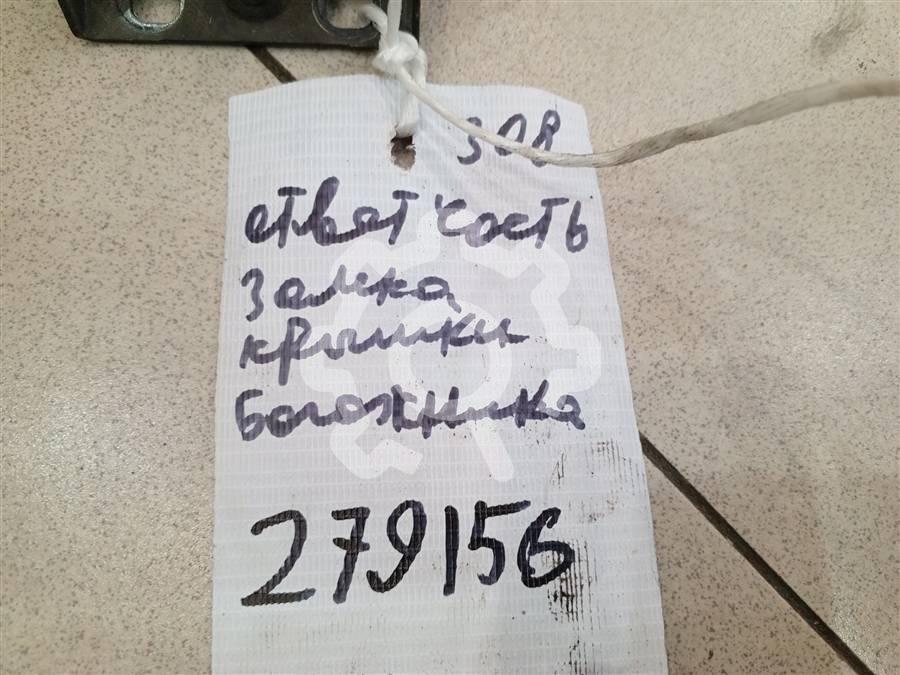 308
ответ часть
замка
крышки
багажника
279156